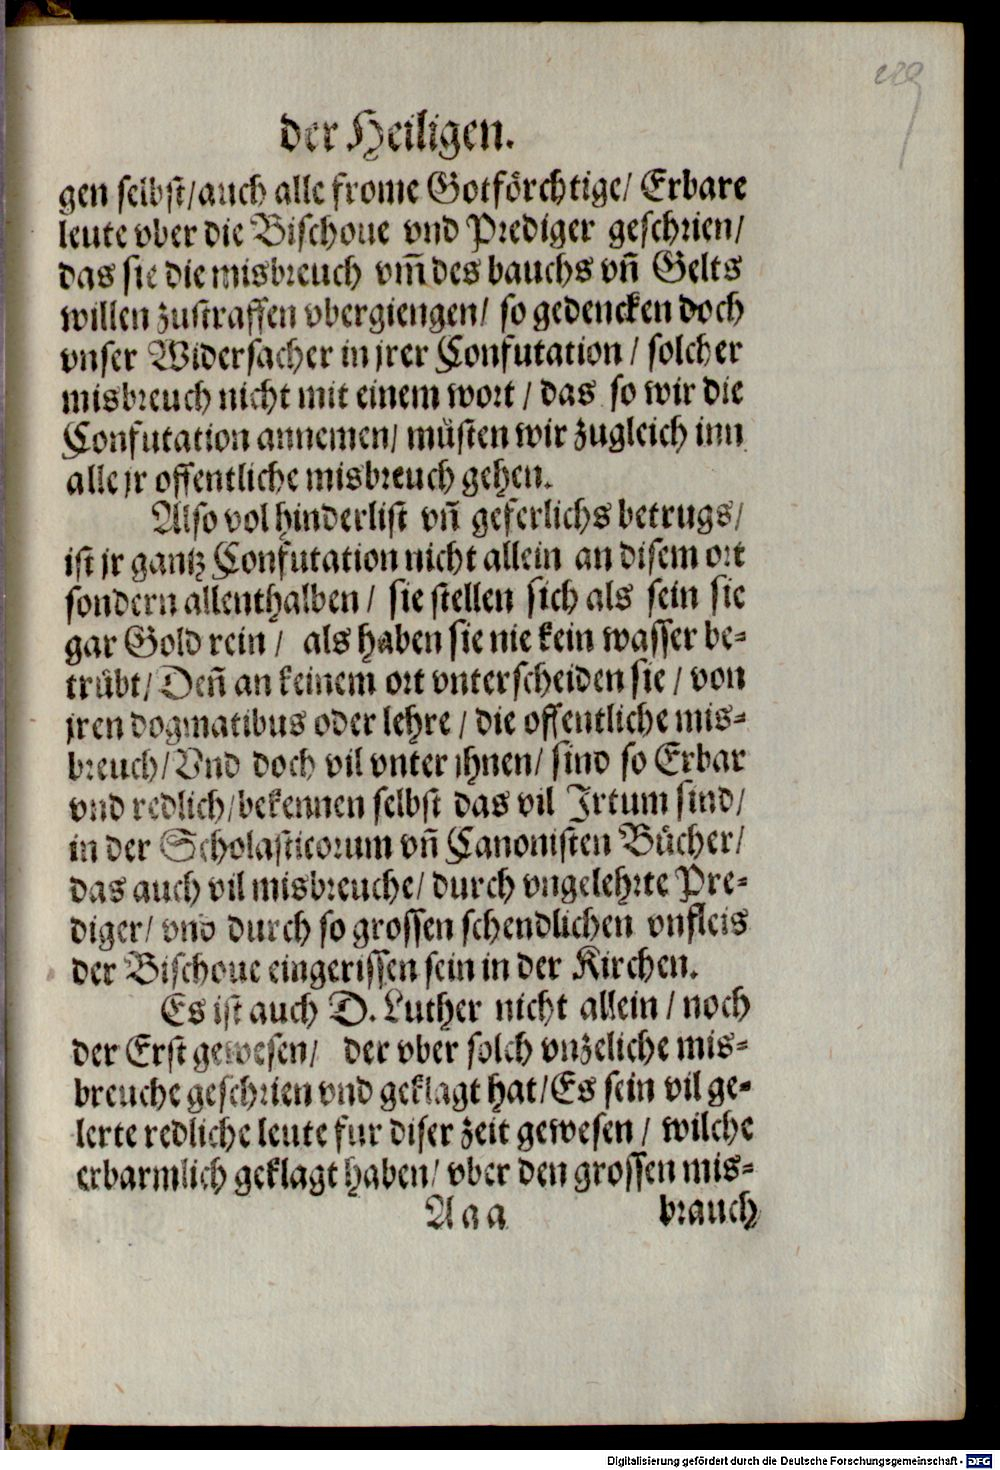 189
der Heiligen.
gen selbst/auch alle frome Gotförchtige/ Erbare
leute vber die Bischoue vnd Prediger geschrien/
das sie die misbreuch vm̃ des bauchs vñ Gelts
willen zustraffen vbergiengen/ so gedencken doch
vnser Widersacher in jrer Confutation / solcher
misbreuch nicht mit einem wort / das so wir die
Confutation annemen/ müsten wir zugleich inn
alle jr offentliche misbreuch gehen.
Also vol hinderlist vñ geferlichs betrugs/
ist jr gantz Confutation nicht allein an disem ort
sondern allenthalben / sie stellen sich als sein sie
gar Gold rein / als haben sie nie kein wasser be-
trübt/ Deñ an keinem ort vnterscheiden sie / von
jren dogmatibus oder lehre / die offentliche mis-
breuch/ Vnd doch vil vnter ihnen/ sind so Erbar
vnd redlich/bekennen selbst das vil Irtum sind/
in der Scholasticorum vñ Canonisten Bücher/
das auch vil misbreuche/ durch vngelehrte Pre-
diger/ vnd durch so grossen schendlichen vnfleis
der Bischoue eingerissen sein in der Kirchen.
Es ist auch D. Luther nicht allein / noch
der Erst gewesen/ der vber solch vnzeliche mis-
breuche geschrien vnd geklagt hat/Es sein vil ge-
lerte redliche leute fur diser zeit gewesen / wilche
erbarmlich geklagt haben/ vber den grossen mis-
Aaa brauch
Digitalisierung gefördert durch die Deutsche Forschungsgemeinschaft - DFG